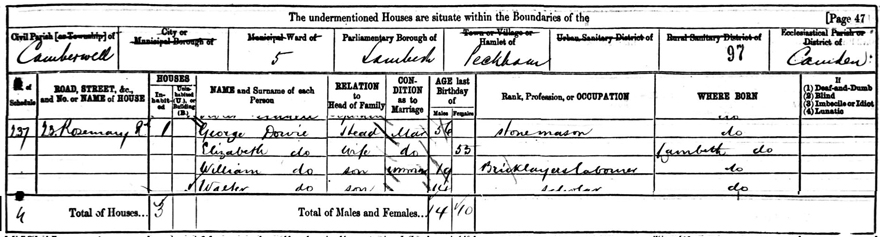 The undermentioned Houses are situate within the Boundaries of the [Page 47
Civil Parish [or Township] of City or Municipal Borough of Municipal Ward of Parliamentary Borough of Town or Village or Hamlet of Urban Sanitary District of Rural Sanitary District of Ecclesiastical Parish or District of
Camberwell 5 Lambeth Peckham 97 Camden
No. of Schedule ROAD, STREET, &c., and No. or NAME of HOUSE HOUSES Inhabited Uninhabited (U.), or Building (B.) NAME and Surname of each Person RELATION to Head of Family CONDITION as to Marriage AGE last Birthday of Males Females Rank, Profession, or OCCUPATION WHERE BORN If (1) Deaf-and-Dumb (2) Blind (3) Imbecile or Idiot (4) Lunatic
do
237 22 Rosemary Rd 1 George Dowie Head Mar 56 stonemason do
Elizabeth do Wife do 53 Lambeth do
William do son 19 Bricklayers Labourer do
Walter do son 14 scholar do
4 Total of Houses... 3 Total of Males and Females... 14 10